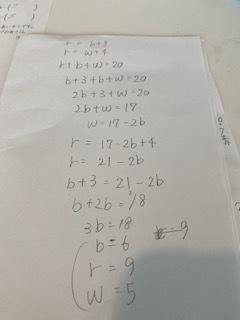 r = b+3
r = w+4
r+b+w=20
b+3+b+w=20
2b+3+w=20
2b+w=17
w=17-2b
r = 17-2b+4
r = 21-2b
b+3=21-2b
b+2b=18
3b=18
b=6
r=9
w=5